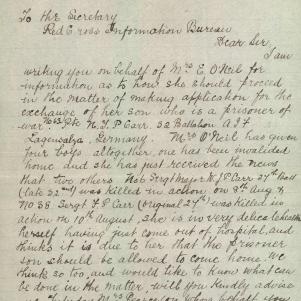 To the Secretary
Red Cross Information Bureau
Dear Sir,
I am
writing you on behalf of Mrs E. O'Neil for
information as to how she should proceed
in the matter of making application for the
exchange of her son who is a prisoner of
war. Pte N. G. P Carr. 32 Battalion A.I.F
Langensalza, Germany. Mrs O'Neil has given
four boys altogether, one has been invalided
home and she has just received the news
that two others No Sergt Major J P Carr 27th Batt
(late 32nd) was killed in action on 8th Aug &
No 38. Sergt F Carr (original 27th) was killed in
action on 10th August, she is in very delicate health
herself having just come out of hospital, and
thinks it is due to her that the prisoner
son should be allowed to come home. we
think so too, and would like to know what can
be done in the matter, will you kindly advise